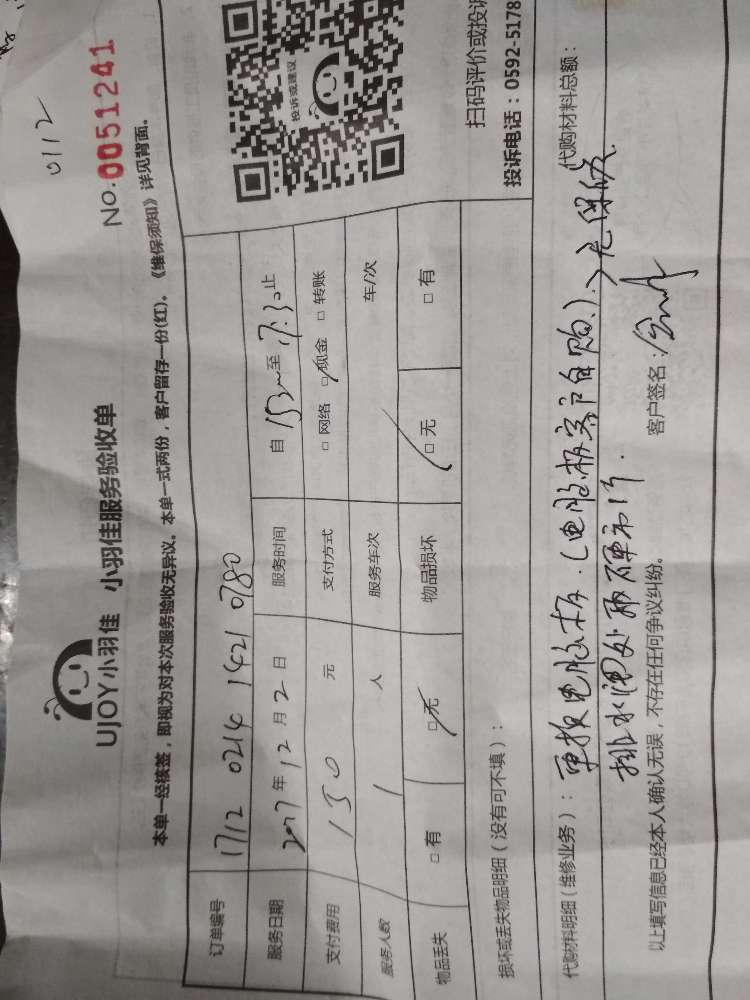 0112
NO.0051241
UJOY小羽佳 小羽佳服务验收单
本单一经核签，即视为对本次服务验收无异议。本单一式两份，客户留存一份(红)。《维保须知》详见背面。
订单编号 1712 0214 1421 0780
服务日期 2017年12月2日 服务时间 自 1530 至 17:30 止
支付费用 130 元 支付方式 □ 网络 □ 现金 □ 转账
服务人数 1 人 服务车次 车/次
物品丢失 □ 有 □ 无 物品损坏 □ 无 □ 有
投诉或建议
扫码评价或投诉
投诉电话：0592-5178
损坏或丢失物品明细（没有可不填）：
代购材料明细（维修业务）：更换电脑板.(电脑板客户自购)、无保修.
代购材料总额：
排水阀处
以上填写信息已经本人确认无误，不存在任何争议纠纷。
客户签名：